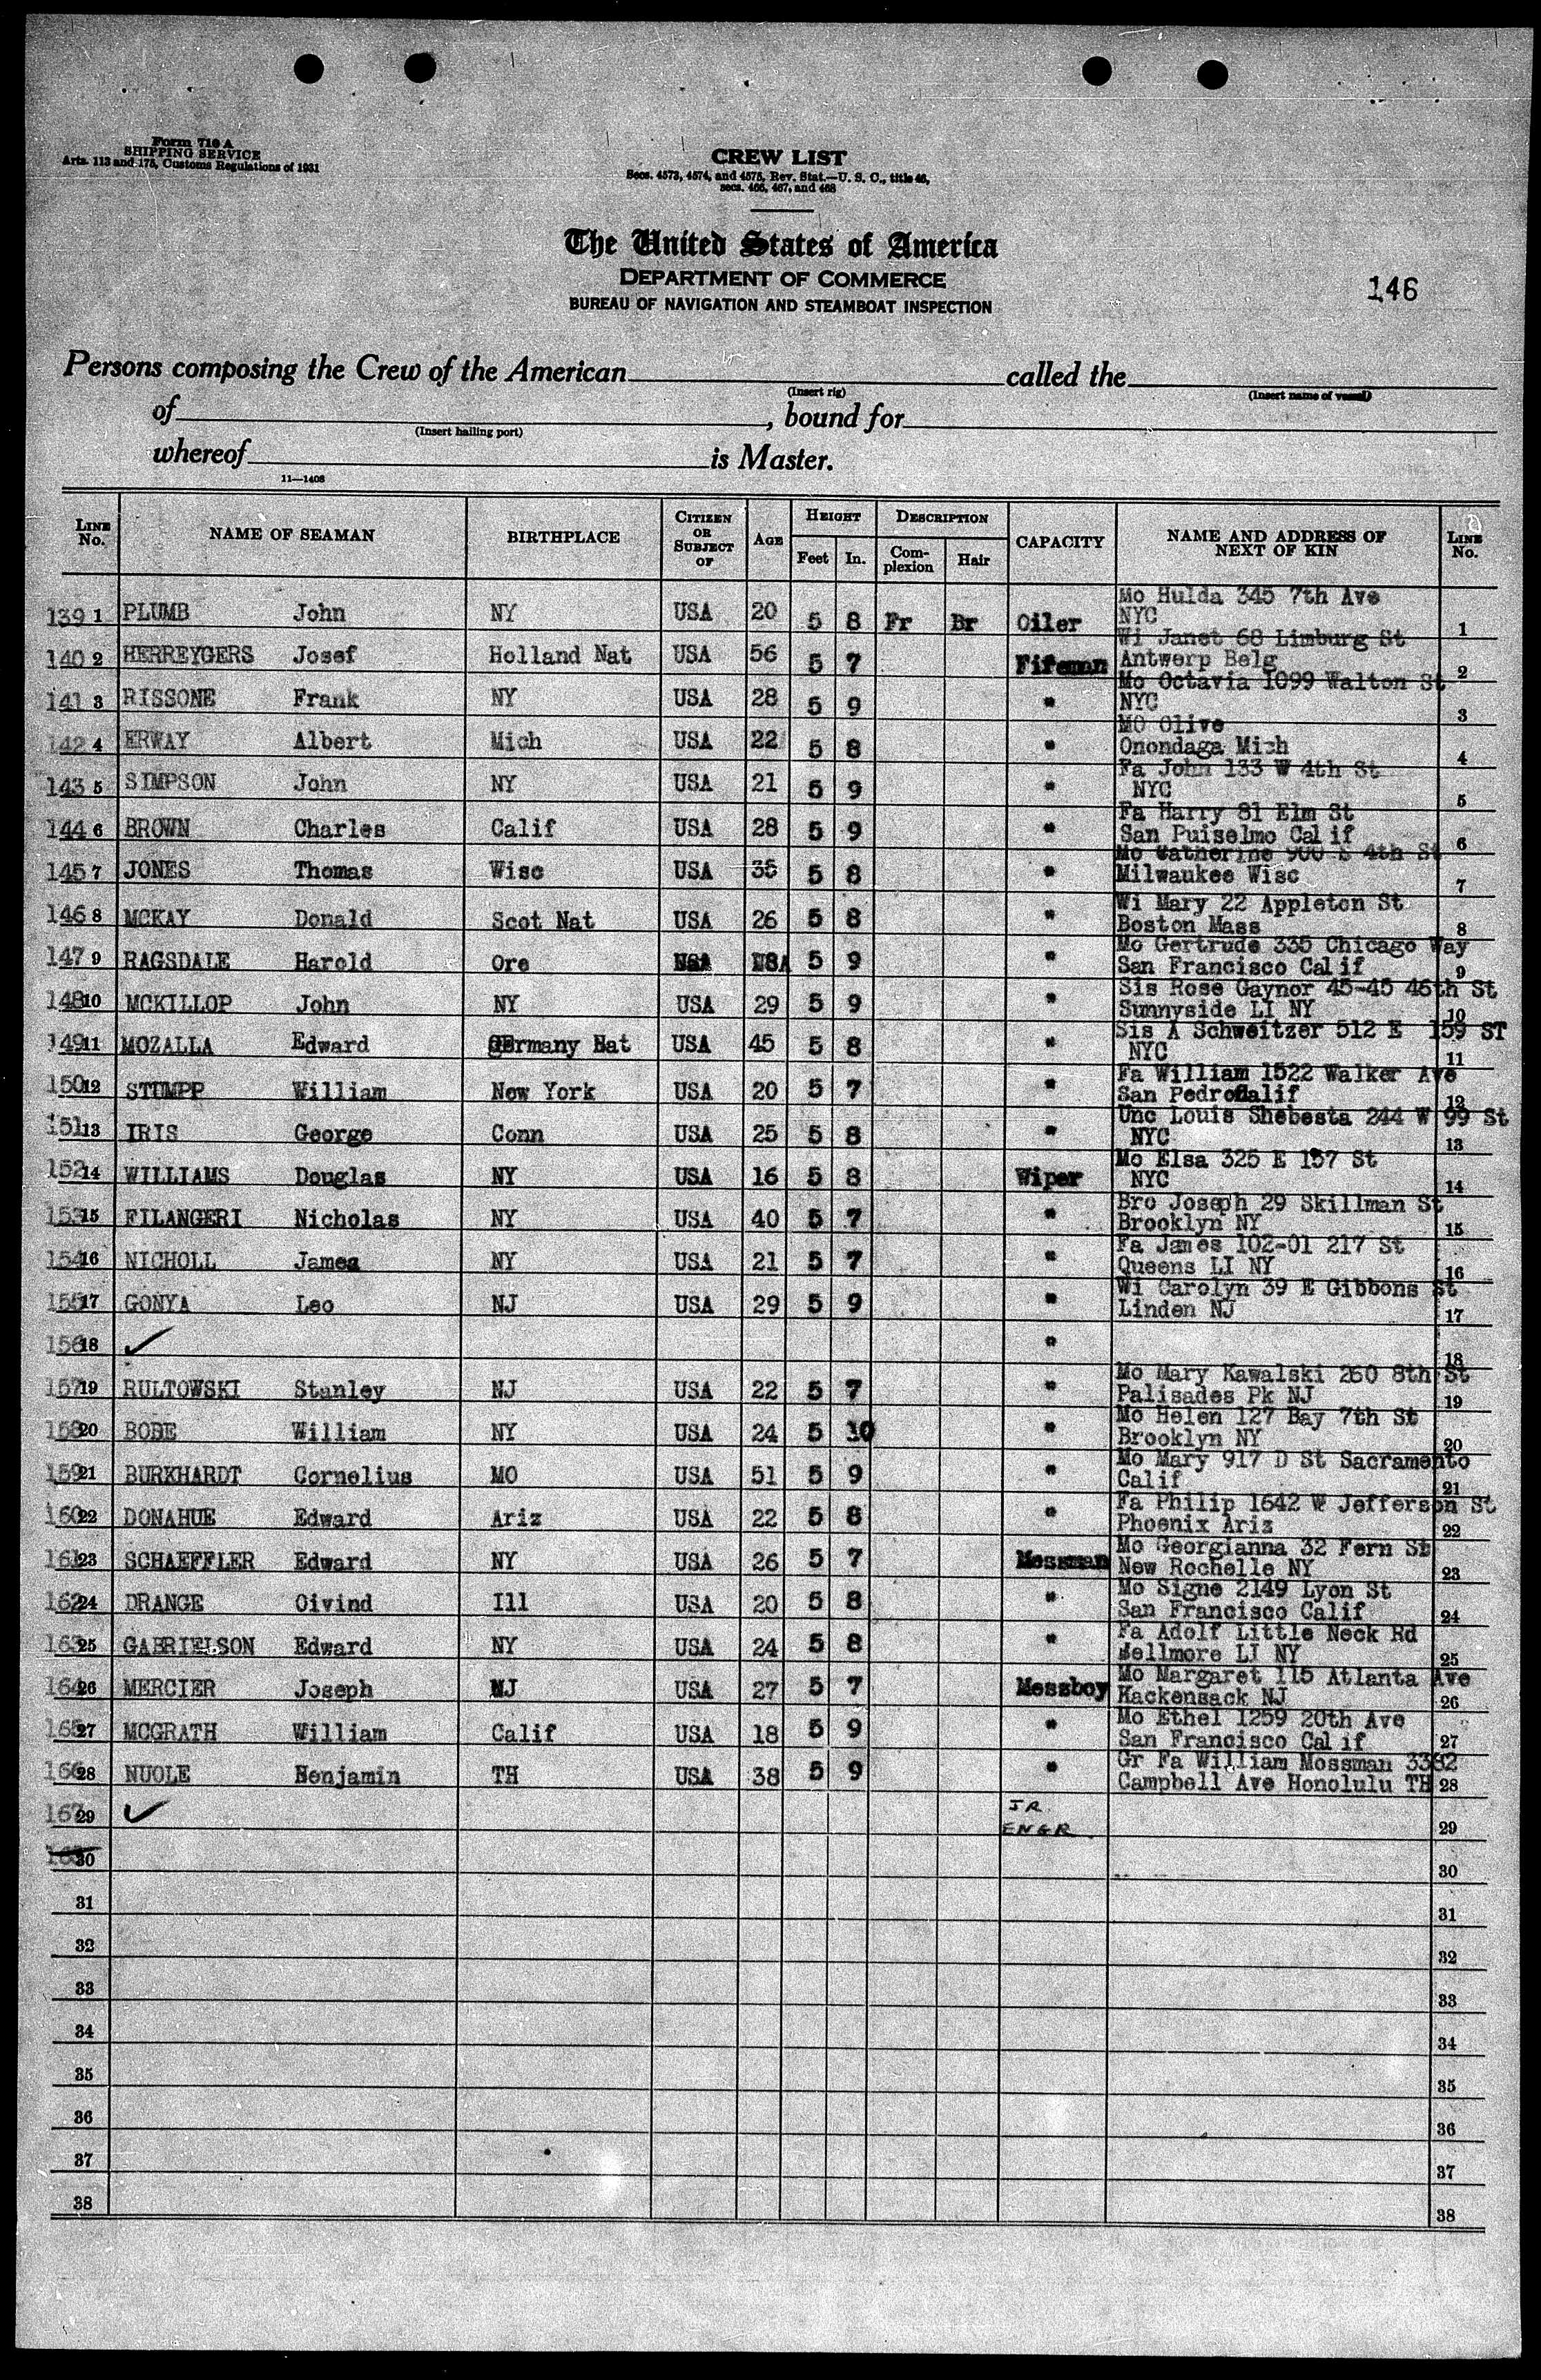 Form 710 A
SHIPPING SERVICE
Arts. 113 and 175, Customs Regulations of 1931
CREW LIST
Secs. 4573, 4574, and 4575, Rev. Stat.—U. S. C., title 46,
secs. 466, 467, and 468
The United States of America
DEPARTMENT OF COMMERCE
BUREAU OF NAVIGATION AND STEAMBOAT INSPECTION
146
Persons composing the Crew of the American called the
(Insert rig) (Insert name of vessel)
of , bound for
(Insert hailing port)
whereof is Master.
11—1408
LINE No. NAME OF SEAMAN BIRTHPLACE CITIZEN OR SUBJECT OF AGE HEIGHT Feet In. DESCRIPTION Complexion Hair CAPACITY NAME AND ADDRESS OF NEXT OF KIN LINE No.
139 1 PLUMB John NY USA 20 5 8 Fr Br Oiler Mo Hulda 345 7th Ave NYC 1
140 2 HERREYGERS Josef Holland Nat USA 56 5 7 Fifeman Wi Janet 68 Limburg St Antwerp Belg 2
141 3 RISSONE Frank NY USA 28 5 9 " Mo Octavia 1099 Walton St NYC 3
142 4 ERWAY Albert Mich USA 22 5 8 " MO Olive Onondaga Mich 4
143 5 SIMPSON John NY USA 21 5 9 " Fa John 133 W 4th St NYC 5
144 6 BROWN Charles Calif USA 28 5 9 " Fa Harry 81 Elm St San Puiselmo Calif 6
145 7 JONES Thomas Wisc USA 5 8 " Mo Catherine 900 S 4th St Milwaukee Wisc 7
146 8 MCKAY Donald Scot Nat USA 26 5 8 " Wi Mary 22 Appleton St Boston Mass 8
147 9 RAGSDALE Harold Ore USA 5 9 " Mo Gertrude 335 Chicago Way San Francisco Calif 9
148 10 MCKILLOP John NY USA 29 5 9 " Sis Rose Gaynor 45-45 46th St Sunnyside LI NY 10
149 11 MOZALLA Edward Germany Nat USA 45 5 8 " Sis A Schweitzer 512 E 159 ST NYC 11
150 12 STUMPP William New York USA 20 5 7 " Fa William 1522 Walker Ave San Pedro Calif 12
151 13 IRIS George Conn USA 25 5 8 " Unc Louis Shebesta 244 W 99 St NYC 13
152 14 WILLIAMS Douglas NY USA 16 5 8 Wiper Mo Elsa 325 E 157 St NYC 14
153 15 FILANGERI Nicholas NY USA 40 5 7 " Bro Joseph 29 Skillman St Brooklyn NY 15
154 16 NICHOLL James NY USA 21 5 7 " Fa James 102-01 217 St Queens LI NY 16
155 17 GONYA Leo NJ USA 29 5 9 " Wi Carolyn 39 E Gibbons St Linden NJ 17
156 18 ✓ " 18
157 19 RULTOWSKI Stanley NJ USA 22 5 7 " Mo Mary Kawalski 260 8th St Palisades Pk NJ 19
158 20 BODE William NY USA 24 5 10 " Mo Helen 127 Bay 7th St Brooklyn NY 20
159 21 BURKHARDT Cornelius MO USA 51 5 9 " Mo Mary 917 D St Sacramento Calif 21
160 22 DONAHUE Edward Ariz USA 22 5 8 " Fa Philip 1642 W Jefferson St Phoenix Ariz 22
161 23 SCHAEFFLER Edward NY USA 26 5 7 Messman Mo Georgianna 32 Fern St New Rochelle NY 23
162 24 DRANGE Oivind Ill USA 20 5 8 " Mo Signe 2149 Lyon St San Francisco Calif 24
163 25 GABRIELSON Edward NY USA 24 5 8 " Fa Adolf Little Neck Rd Bellmore LI NY 25
164 26 MERCIER Joseph NJ USA 27 5 7 Messboy Mo Margaret 115 Atlanta Ave Hackensack NJ 26
165 27 MCGRATH William Calif USA 18 5 9 " Mo Ethel 1259 20th Ave San Francisco Calif 27
166 28 NUOLE Benjamin TH USA 38 5 9 " Gr Fa William Mossman 3382 Campbell Ave Honolulu TH 28
167 29 ✓ JR ENGR 29
30 30
31 31
32 32
33 33
34 34
35 35
36 36
37 37
38 38